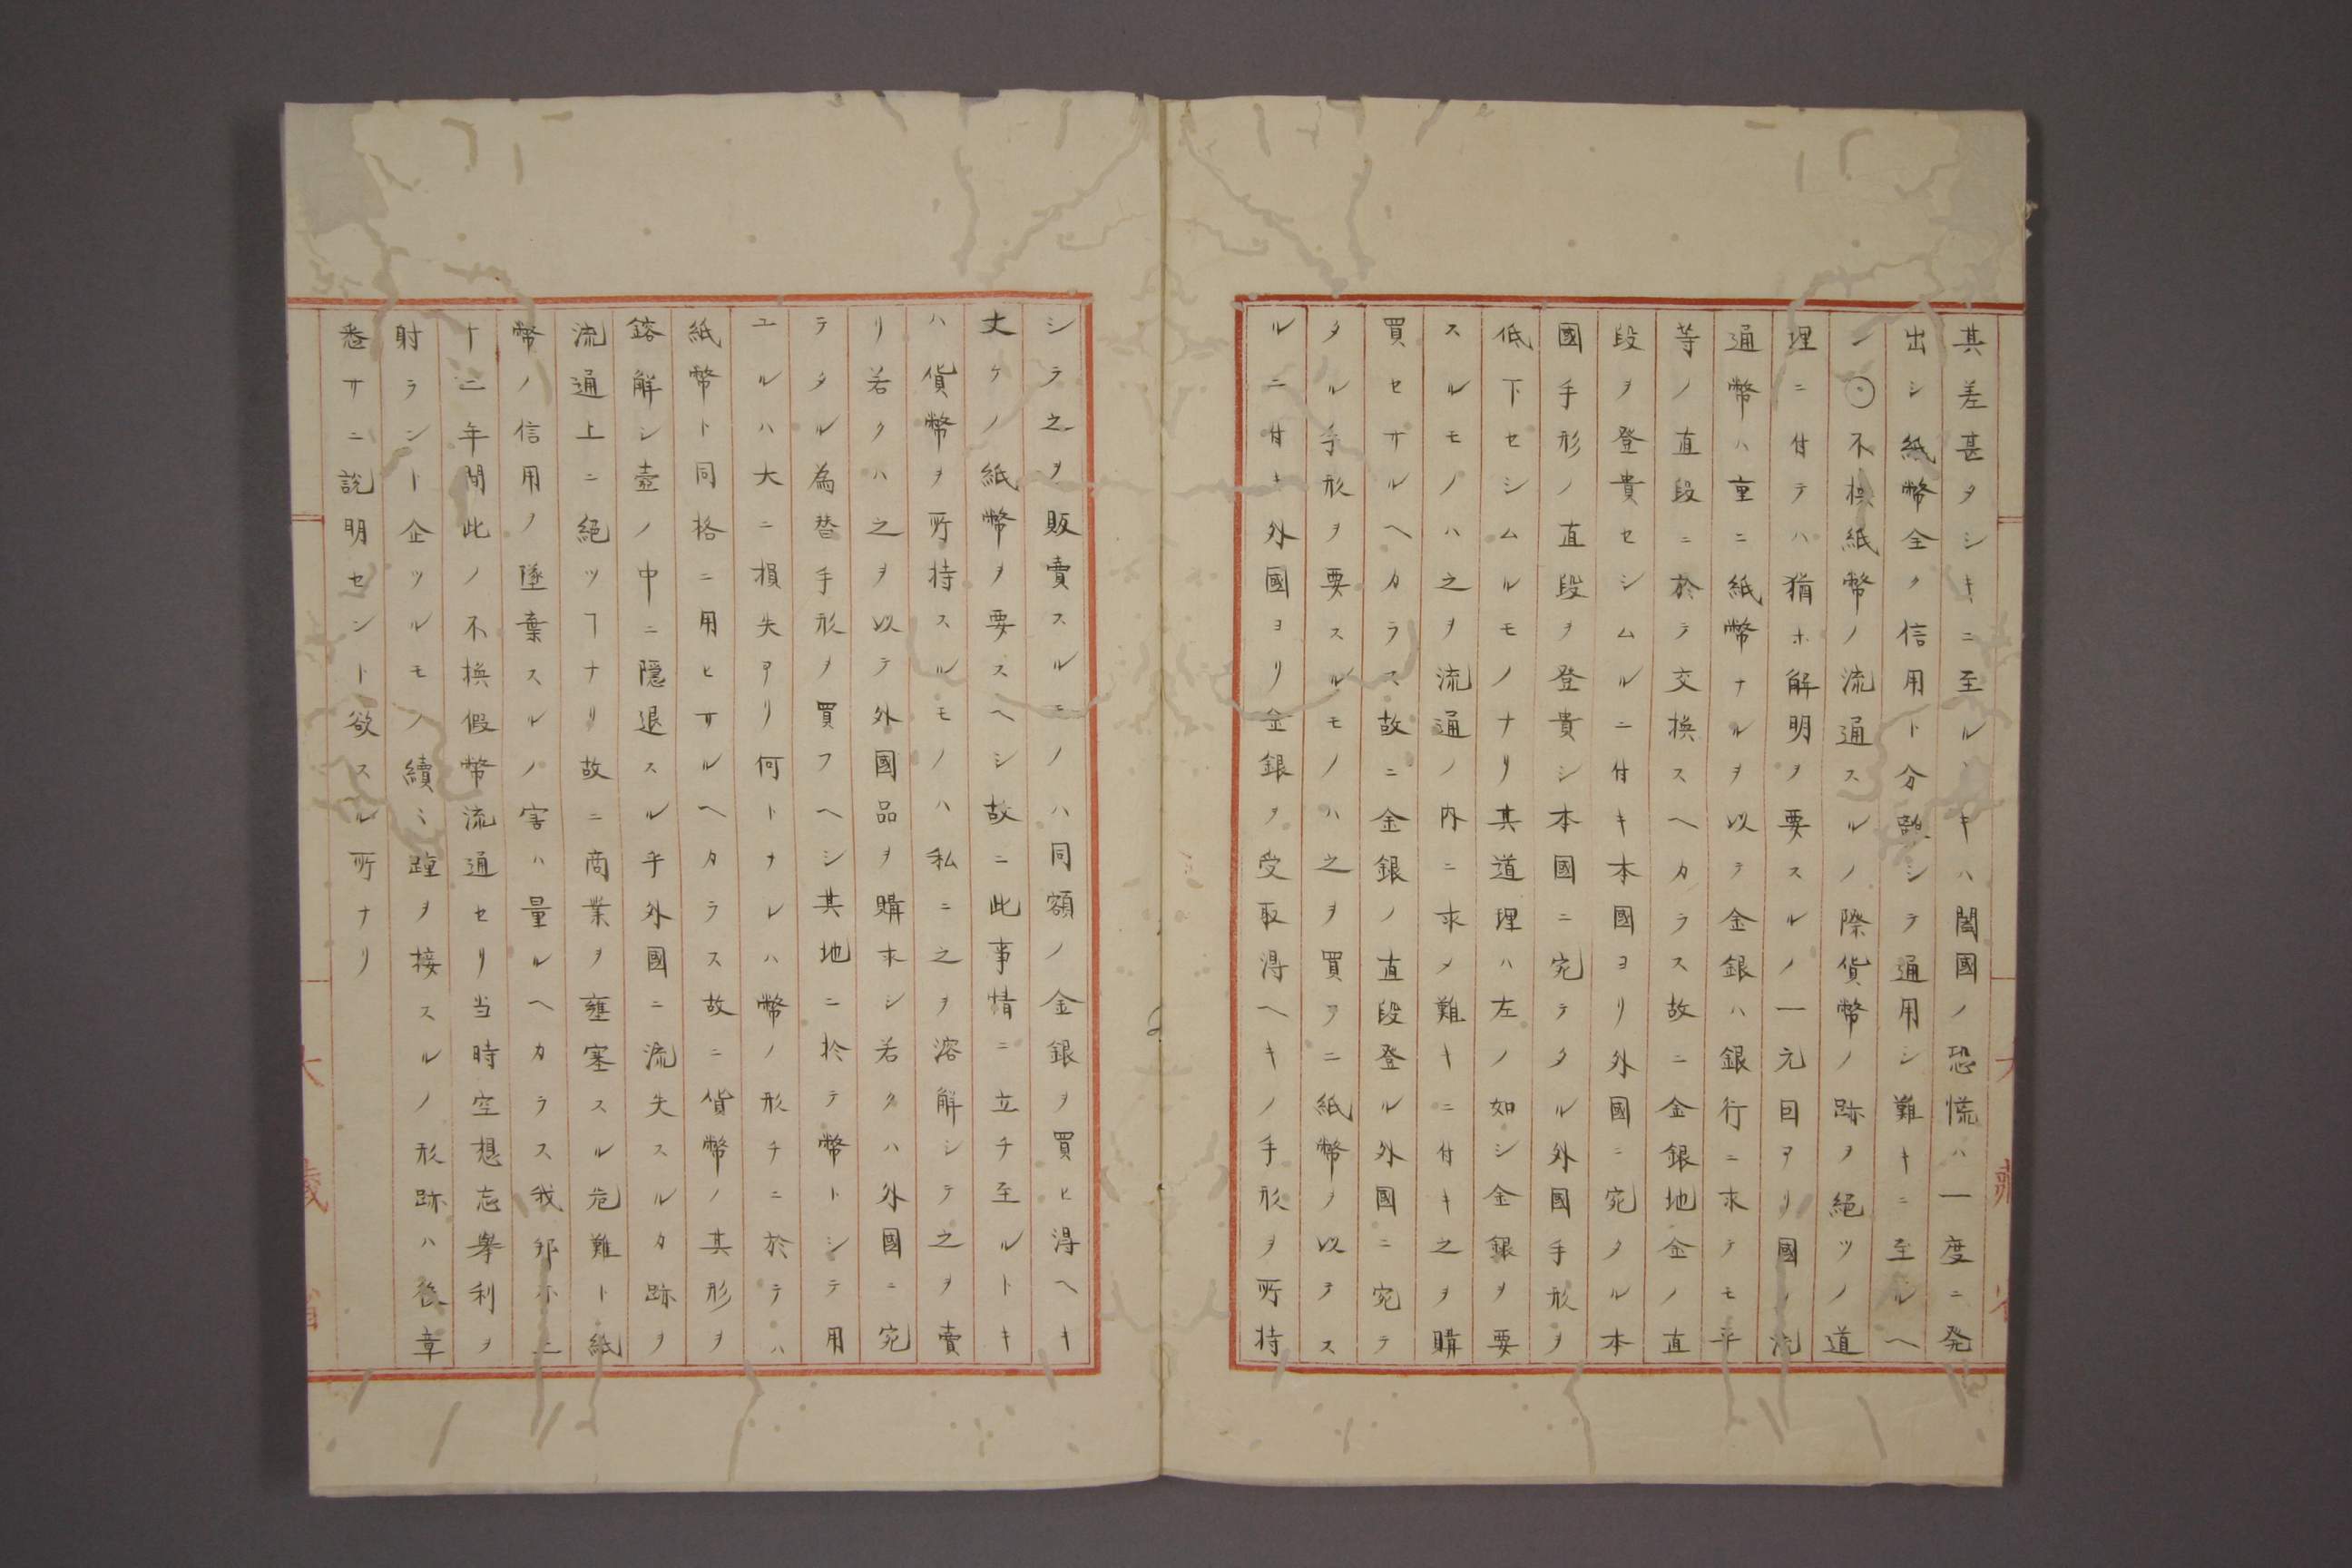 其差甚タシキニ至ルトキハ闔國ノ恐慌ハ一度ニ発
出シ紙幣全ク信用ト分離シテ通用シ難キニ至ルヘ
シ〇不換紙幣ノ流通スルノ際貨幣ノ跡ヲ絕ツノ道
理ニ付テハ猶ホ解明ヲ要スルノ一元因アリ國ノ流
通幣ハ重ニ紙幣ナルヲ以テ金銀ハ銀行ニ求テモ平
等ノ直段ニ於テ交換スヘカラス故ニ金銀地金ノ直
段ヲ登貴セシムルニ付キ本國ヨリ外國ニ宛タル本
國手形ノ直段ヲ登貴シ本國ニ宛テタル外國手形ヲ
低下セシムルモノナリ其道理ハ左ノ如シ金銀ヲ要
スルモノハ之ヲ流通ノ内ニ求メ難キニ付キ之ヲ購
買セサルヘカラス故ニ金銀ノ直段登ル外國ニ宛テ
タル手形ヲ要スルモノハ之ヲ買フニ紙幣ヲ以テス
ルニ付キ外國ヨリ金銀ヲ受取得ヘキノ手形ヲ所持
シテ之ヲ販賣スルモノハ同額ノ金銀ヲ買ヒ得ヘキ
丈ケノ紙幣ヲ要スヘシ故ニ此事情ニ立チ至ルトキ
ハ貨幣ヲ所持スルモノハ私ニ之ヲ溶解シテ之ヲ賣
リ若クハ之ヲ以テ外國品ヲ購求シ若クハ外國ニ宛
テタル為替手形ヲ買フヘシ其地ニ於テ幣トシテ用
ユルハ大ニ損失アリ何トナレハ幣ノ形チニ於テハ
紙幣ト同格ニ用ヒサルヘカラス故ニ貨幣ノ其形ヲ
鎔解シ壺ノ中ニ隱退スル乎外國ニ流失スルカ跡ヲ
流通上ニ絕ツヿナリ故ニ商業ヲ壅塞スル危難ト紙
幣ノ信用ノ墜棄スルノ害ハ量ルヘカラス我邦亦ニ
十二年間此ノ不換假幣流通セリ当時空想忘擧利ヲ
射ラント企ツルモノ續々踵ヲ接スルノ形跡ハ後章
悉サニ説明セント欲スル所ナリ
大藏省